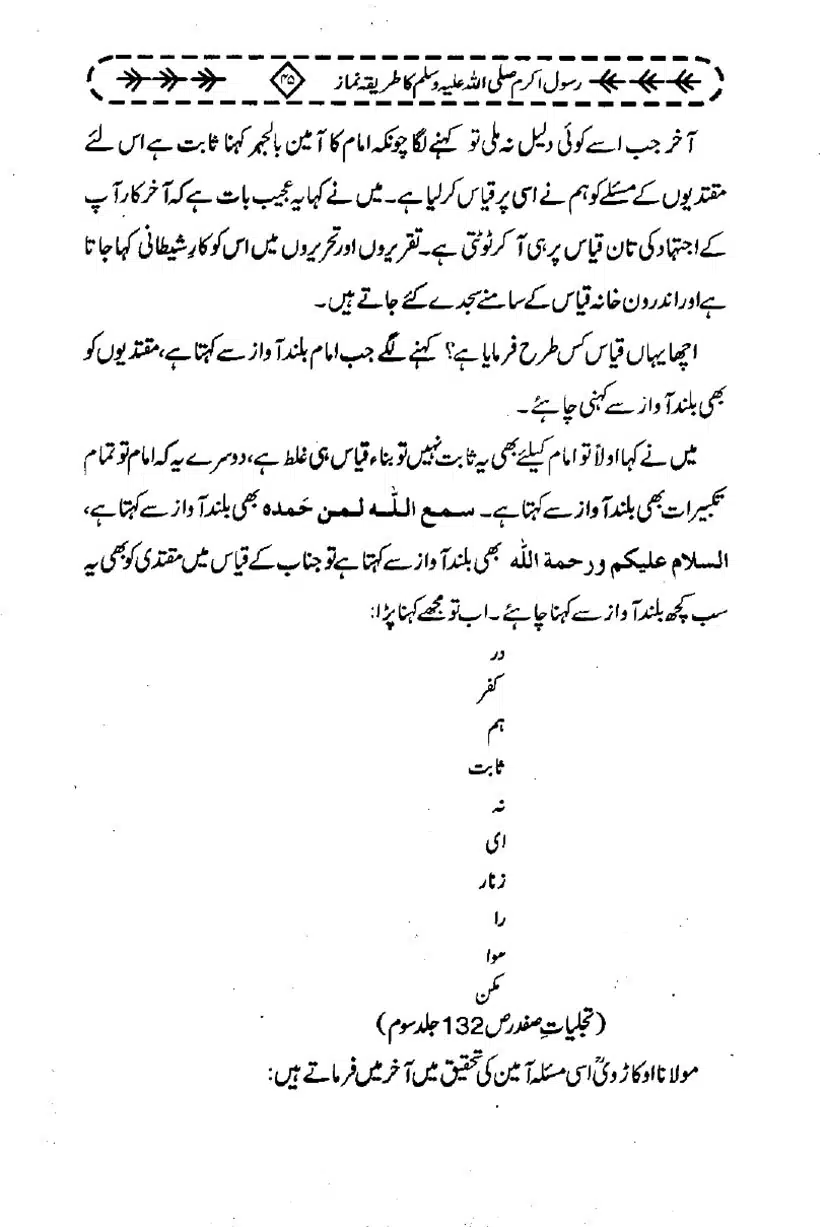 رسول اکرم صلی اللہ علیہ وسلم کا طریقہ نماز ۴۵
آخر جب اسے کوئی دلیل نہ ملی تو کہنے لگا چونکہ امام کا آمین بالجہر کہنا ثابت ہے اس لئے
مقتدیوں کے مسئلے کو ہم نے اسی پر قیاس کرلیا ہے۔ میں نے کہا یہ عجیب بات ہے کہ آخر کار آپ
کے اجتہاد کی تان قیاس پر ہی آ کر ٹوٹتی ہے۔ تقریروں اور تحریروں میں اس کو کارِ شیطانی کہا جاتا
ہے اور اندرون خانہ قیاس کے سامنے سجدے کئے جاتے ہیں۔
اچھا یہاں قیاس کس طرح فرمایا ہے؟ کہنے لگے جب امام بلند آواز سے کہتا ہے، مقتدیوں کو
بھی بلند آواز سے کہنی چاہئے۔
میں نے کہا اولاً تو امام کیلئے بھی یہ ثابت نہیں تو بناء قیاس ہی غلط ہے، دوسرے یہ کہ امام تو تمام
تکبیرات بھی بلند آواز سے کہتا ہے۔ سمع اللّٰہ لمن حمدہ بھی بلند آواز سے کہتا ہے،
السلام علیکم ورحمة اللّٰہ بھی بلند آواز سے کہتا ہے تو جناب کے قیاس میں مقتدی کو بھی یہ
سب کچھ بلند آواز سے کہنا چاہئے۔ اب تو مجھے کہنا پڑا:
در
کفر
ہم
ثابت
نہ
ای
زنار
را
سوا
مکن
(تجلیاتِ صفدر ص 132 جلد سوم)
مولانا اوکاڑویؒ اسی مسئلہ آمین کی تحقیق میں آخر میں فرماتے ہیں: